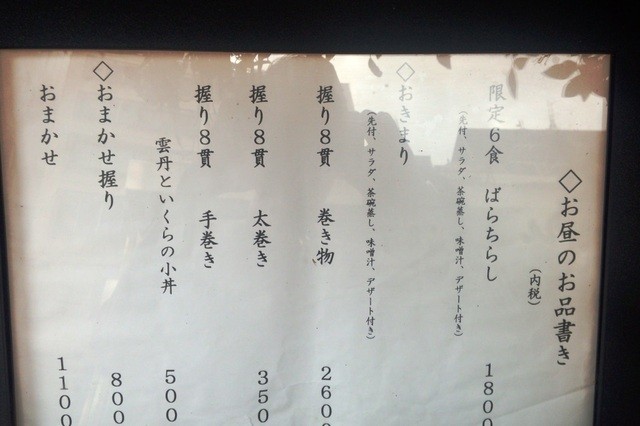 ◇お昼のお品書き
（内税）
限定6食 ばらちらし 1800
（先付、サラダ、茶碗蒸し、味噌汁、デザート付き）
◇おきまり
（先付、サラダ、茶碗蒸し、味噌汁、デザート付き）
握り8貫 巻き物 2600
握り8貫 太巻き 350
握り8貫 手巻き
雲丹といくらの小丼 500
◇おまかせ握り 800
おまかせ 1100